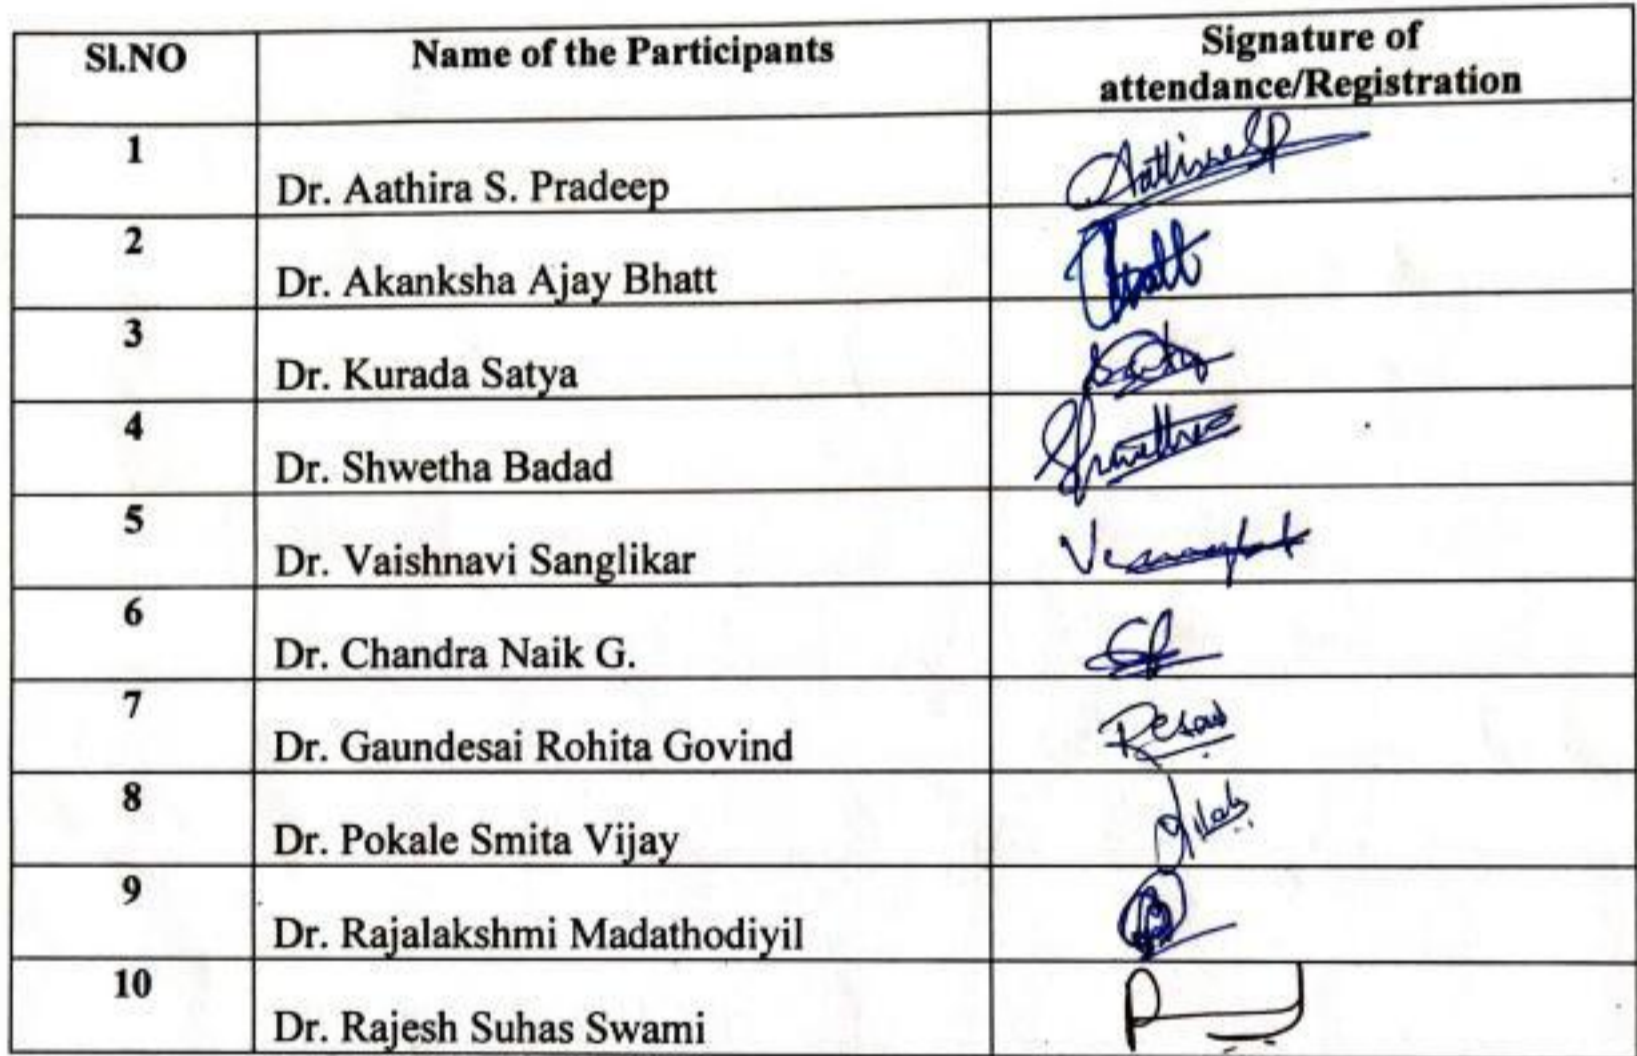 Sl.NO Name of the Participants Signature of
attendance/Registration
1
Dr. Aathira S. Pradeep
2
Dr. Akanksha Ajay Bhatt
3
Dr. Kurada Satya
4
Dr. Shwetha Badad
5
Dr. Vaishnavi Sanglikar
6
Dr. Chandra Naik G.
7
Dr. Gaundesai Rohita Govind
8
Dr. Pokale Smita Vijay
9
Dr. Rajalakshmi Madathodiyil
10
Dr. Rajesh Suhas Swami